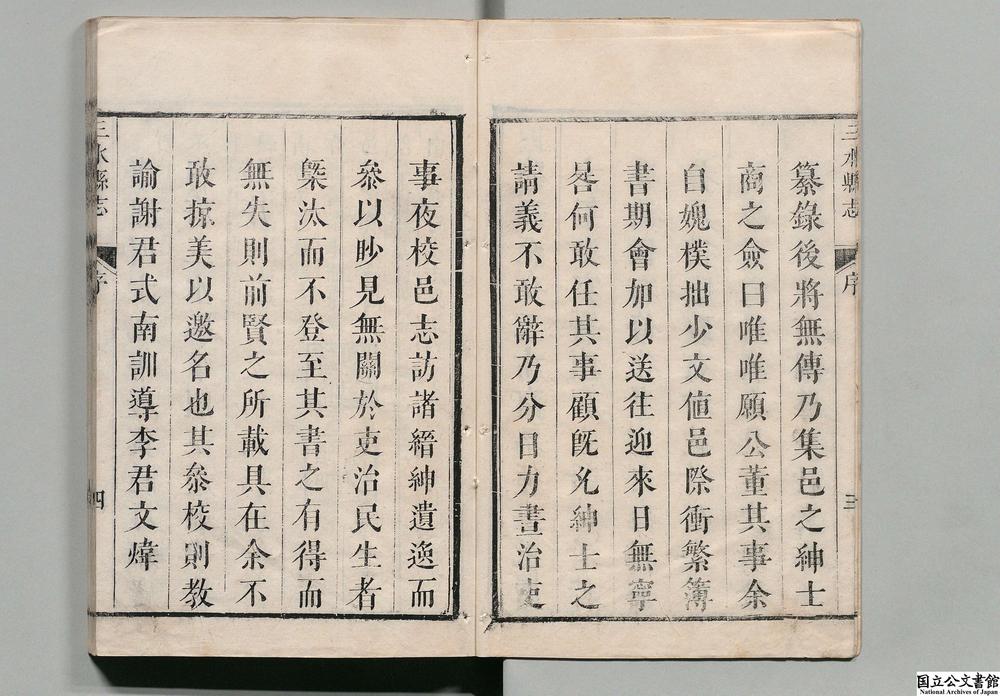 三水縣志
序
三
纂錄後將無傳乃集邑之紳士
商之僉曰唯唯願公董其事余
自媿樸拙少文值邑際衝繁簿
書期會加以送往迎來日無寧
晷何敢任其事顧旣允紳士之
請義不敢辭乃分日力晝治吏
事夜校邑志訪諸縉紳遺逸而
叅以眇見無關於吏治民生者
槩汰而不登至其書之有得而
無失則前賢之所載具在余不
敢掠美以邀名也其叅校則教
諭謝君式南訓導李君文煒
三水縣志
序
四
国立公文書館
National Archives of Japan